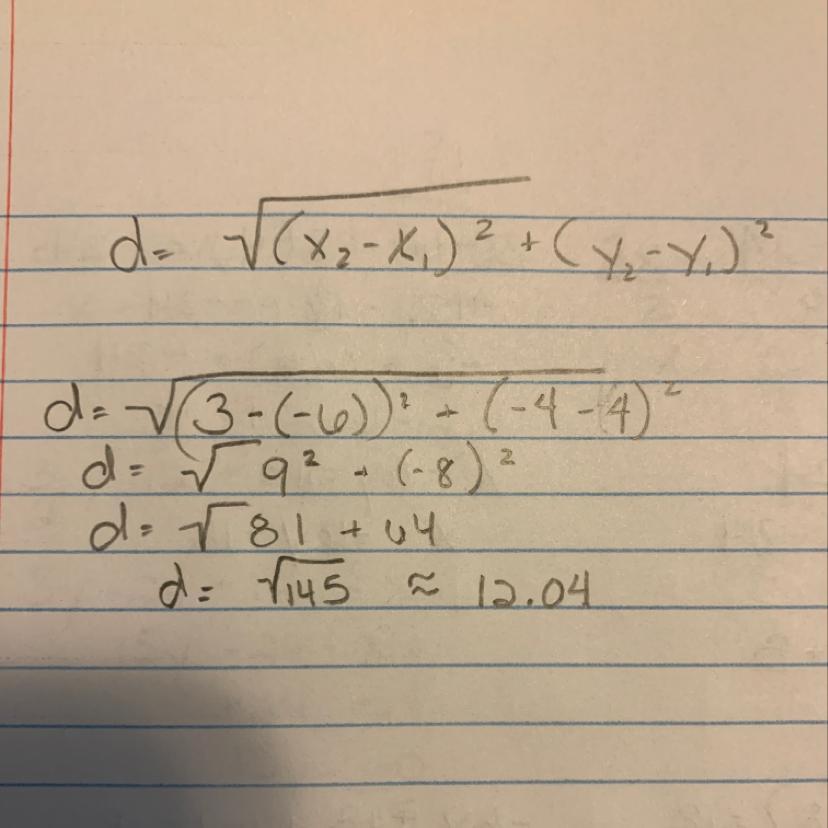 d= √(x₂-x₁)² + (y₂-y₁)²
d= √(3-(-6))² + (-4-4)²
d= √9² - (-8)²
d= √81 + 64
d= √145 ≈ 12.04